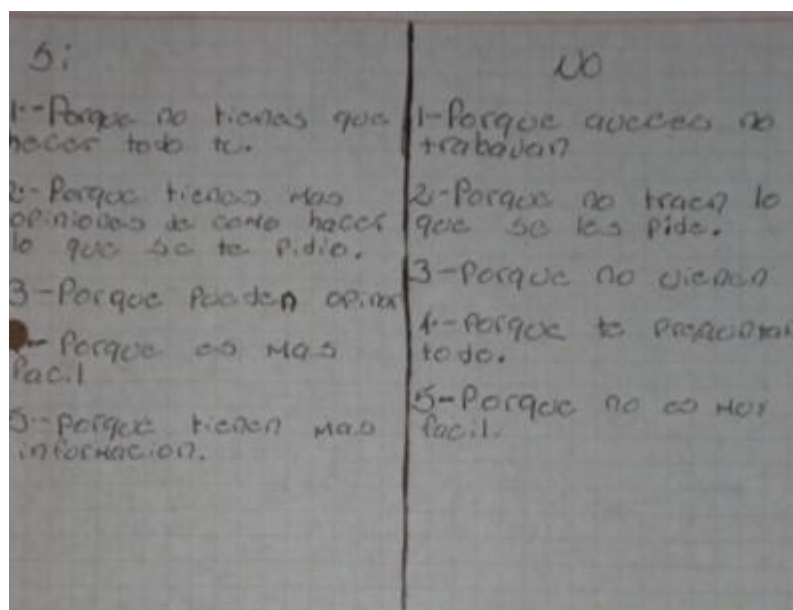 Si
1.-Porque no tienas que
hacer todo tu.
2.-Porque tienes mas
opiniones de como hacer
lo que se te pidio.
3-Porque pueden opinar
- Porque es mas
facil
5.-porque tienen mas
informacion.
NO
1-Porque aveces no
trabajan
2.-Porque no traen lo
que se les pide.
3-Porque no vienen
4.-Porque te preguntan
todo.
5-Porque no es muy
facil.